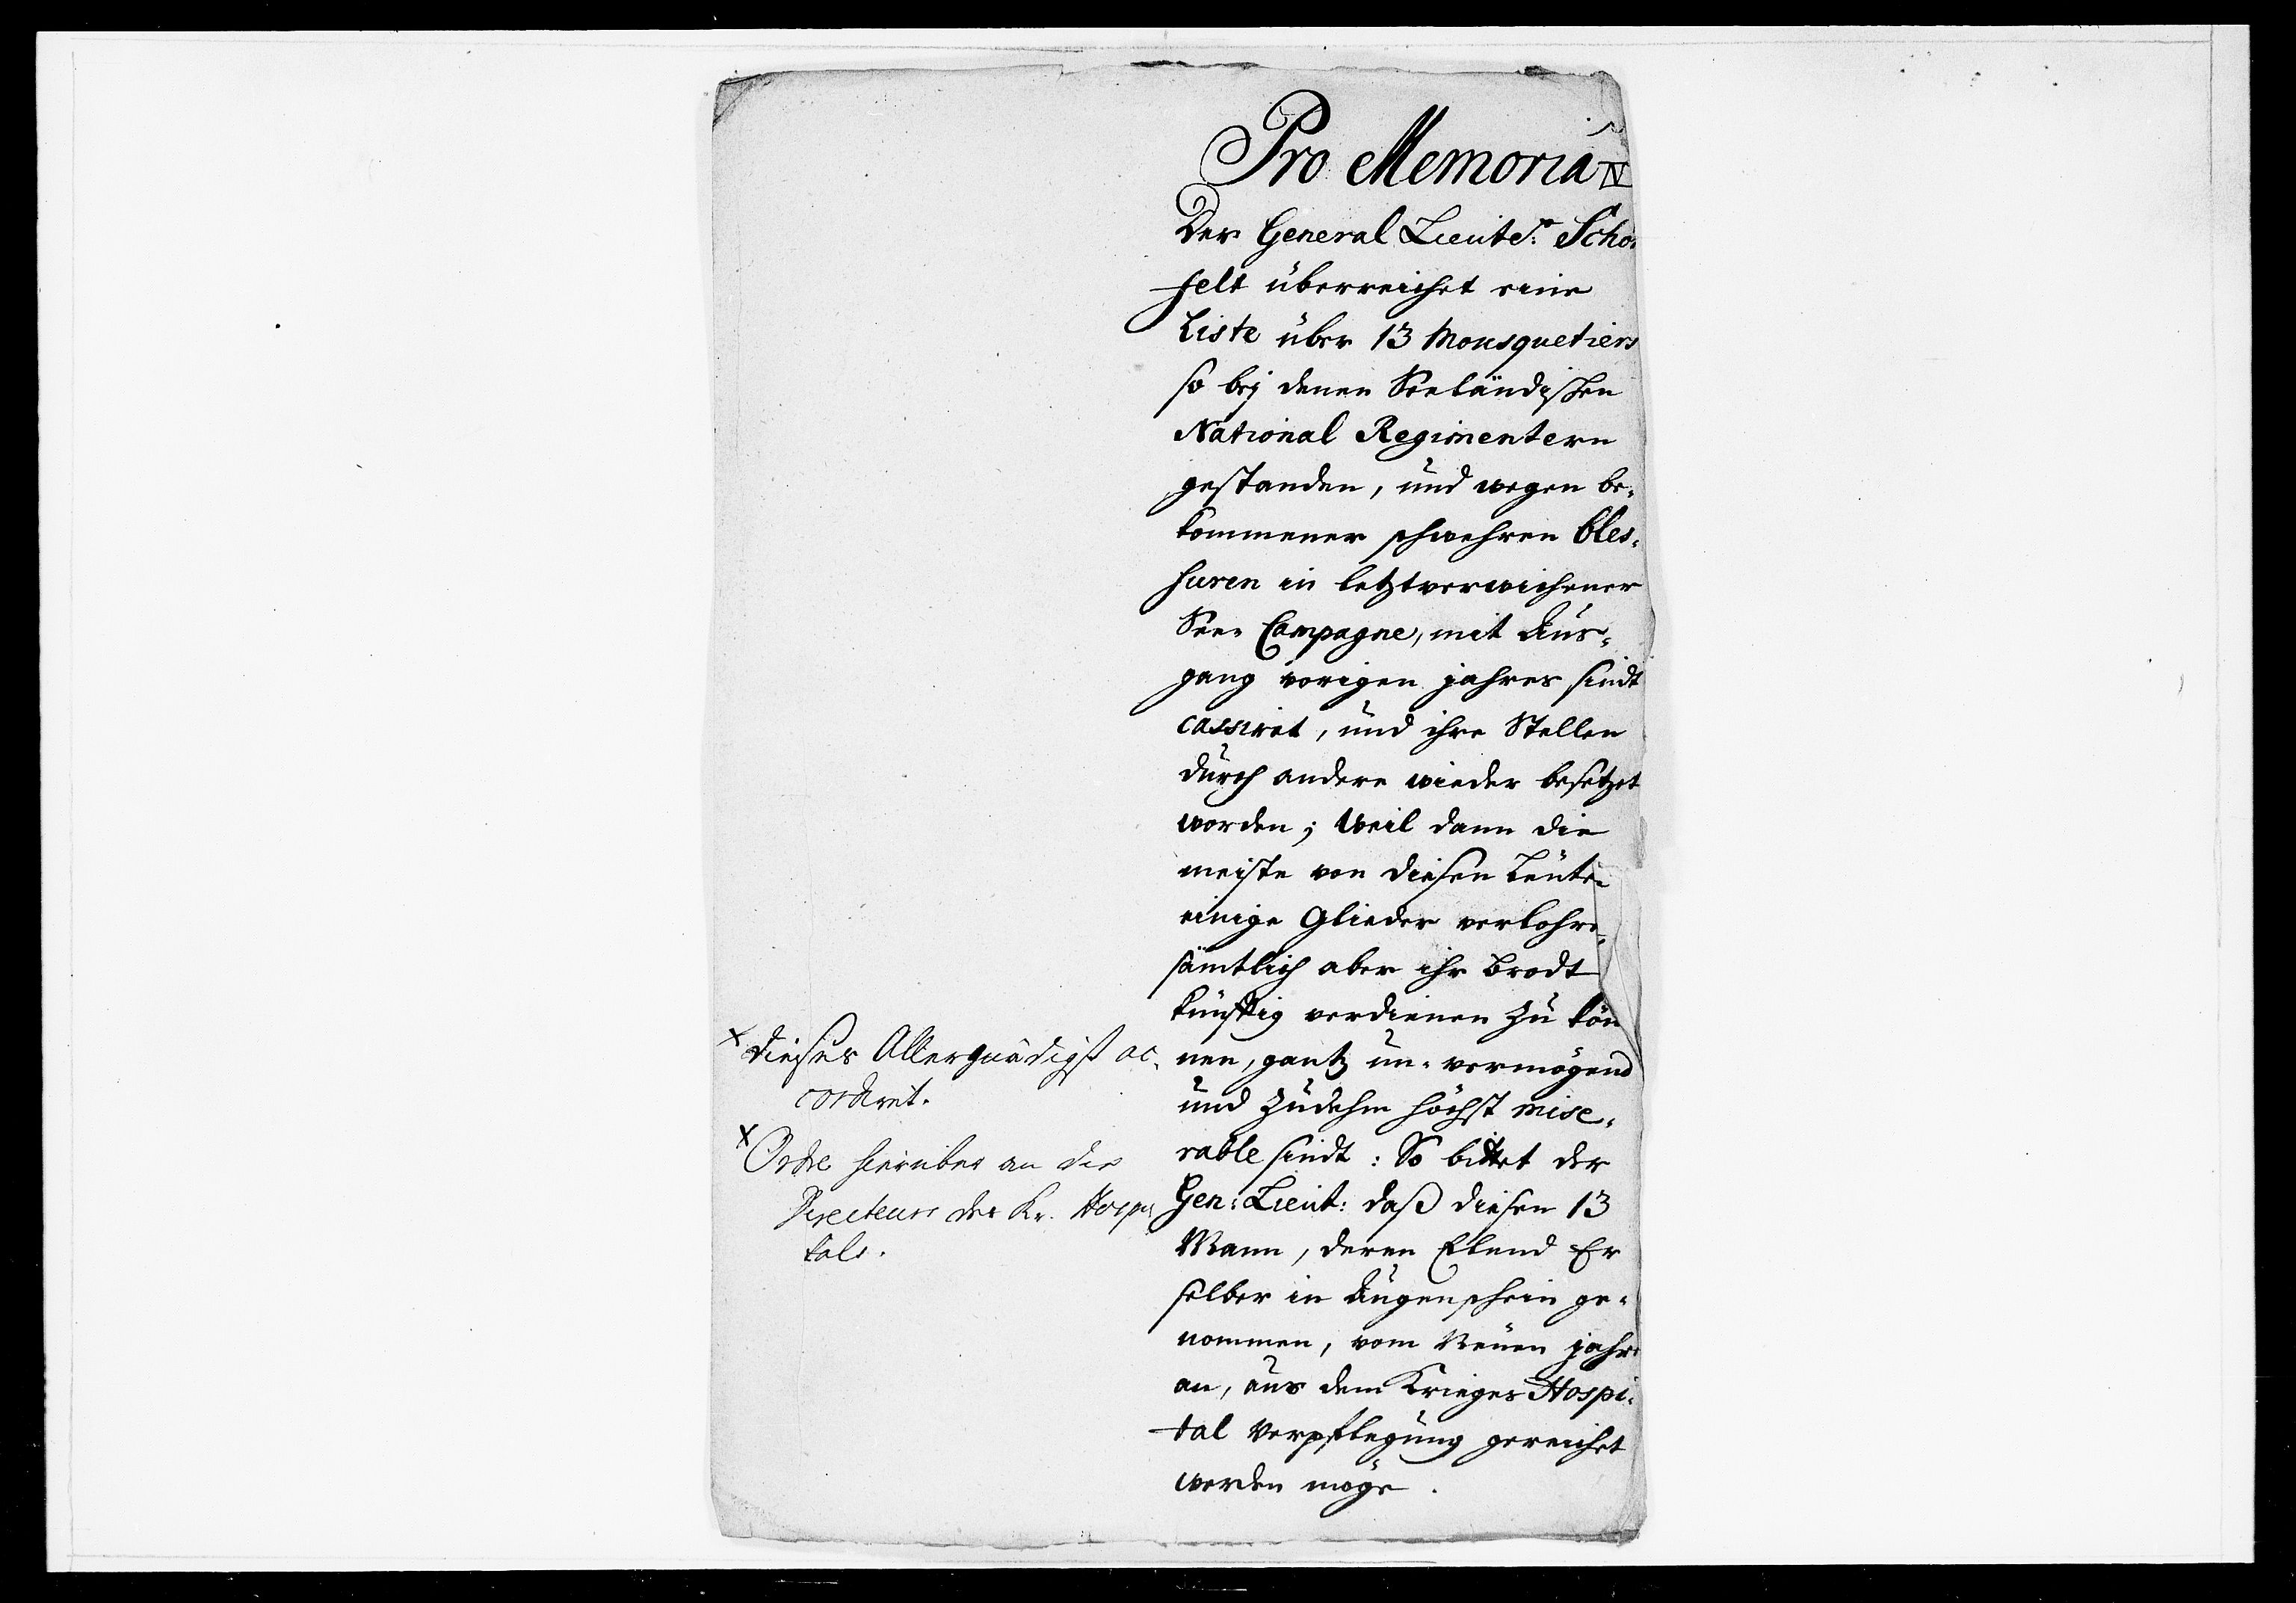 Pro Memoria
Der General Lieute: Scho
felt überreichet eine
Liste über 13 Mousquetiers
so bej denen Seeländischen
National Regimentern
gestanden, und wegen be-
kommener schwehren bles-
suren in letztverwichener
See-Campagne, mit Aus-
gang vorigen jahres sindt
cassiret, und ihre Stellen
durch andere wieder besetzet
worden; Weil dann die
meiste von diesen Leuten
einige Glieder verlohre
sämtlich aber ihr Brodt
künfftig verdienen zu kön
nen, gantz un-vermögend
und zudehm höchst mise-
rable sindt: So bittet der
Gen: Lieut: daß diesen 13
Mann, deren Elend Er
selber in Augenschein ge-
nommen, vom Neuen jahr
an, aus dem Krieges Hospi-
tal Verpflegung gereichet
werden möge.
x dieses Allergnädigst ac-
cordiret.
x Ordre hierüber an die
Directeurs des Kr. Hospi
tals.